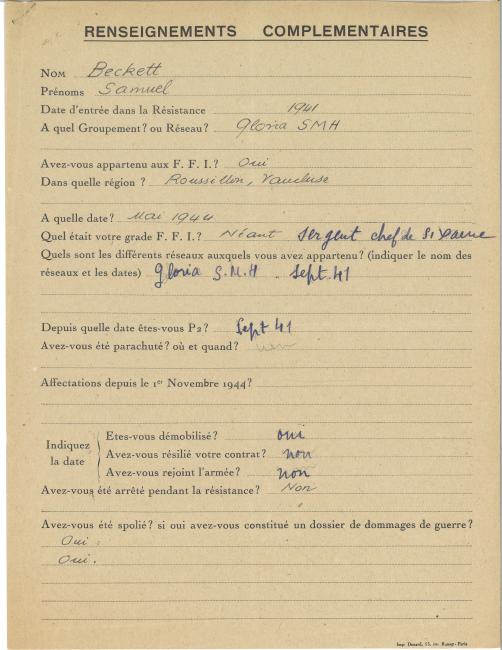 RENSEIGNEMENTS COMPLEMENTAIRES
Nom Beckett
Prénoms Samuel
Date d'entrée dans la Résistance 1941
A quel Groupement? ou Réseau? Gloria SMH
Avez-vous appartenu aux F. F. I.? Oui
Dans quelle région ? Roussillon, Vaucluse
A quelle date? Mai 1944
Quel était votre grade F. F. I.? Néant Sergent chef de
Quels sont les différents réseaux auxquels vous avez appartenu? (indiquer le nom des
réseaux et les dates) Gloria S.M.H .. Sept. 41
Depuis quelle date êtes-vous P2? Sept 41
Avez-vous été parachuté? où et quand?
Affectations depuis le 1er Novembre 1944?
Indiquez
la date
Etes-vous démobilisé? oui
Avez-vous résilié votre contrat? non
Avez-vous rejoint l'armée? non
Avez-vous été arrêté pendant la résistance? Non
Avez-vous été spolié? si oui avez-vous constitué un dossier de dommages de guerre?
Oui.
Oui.